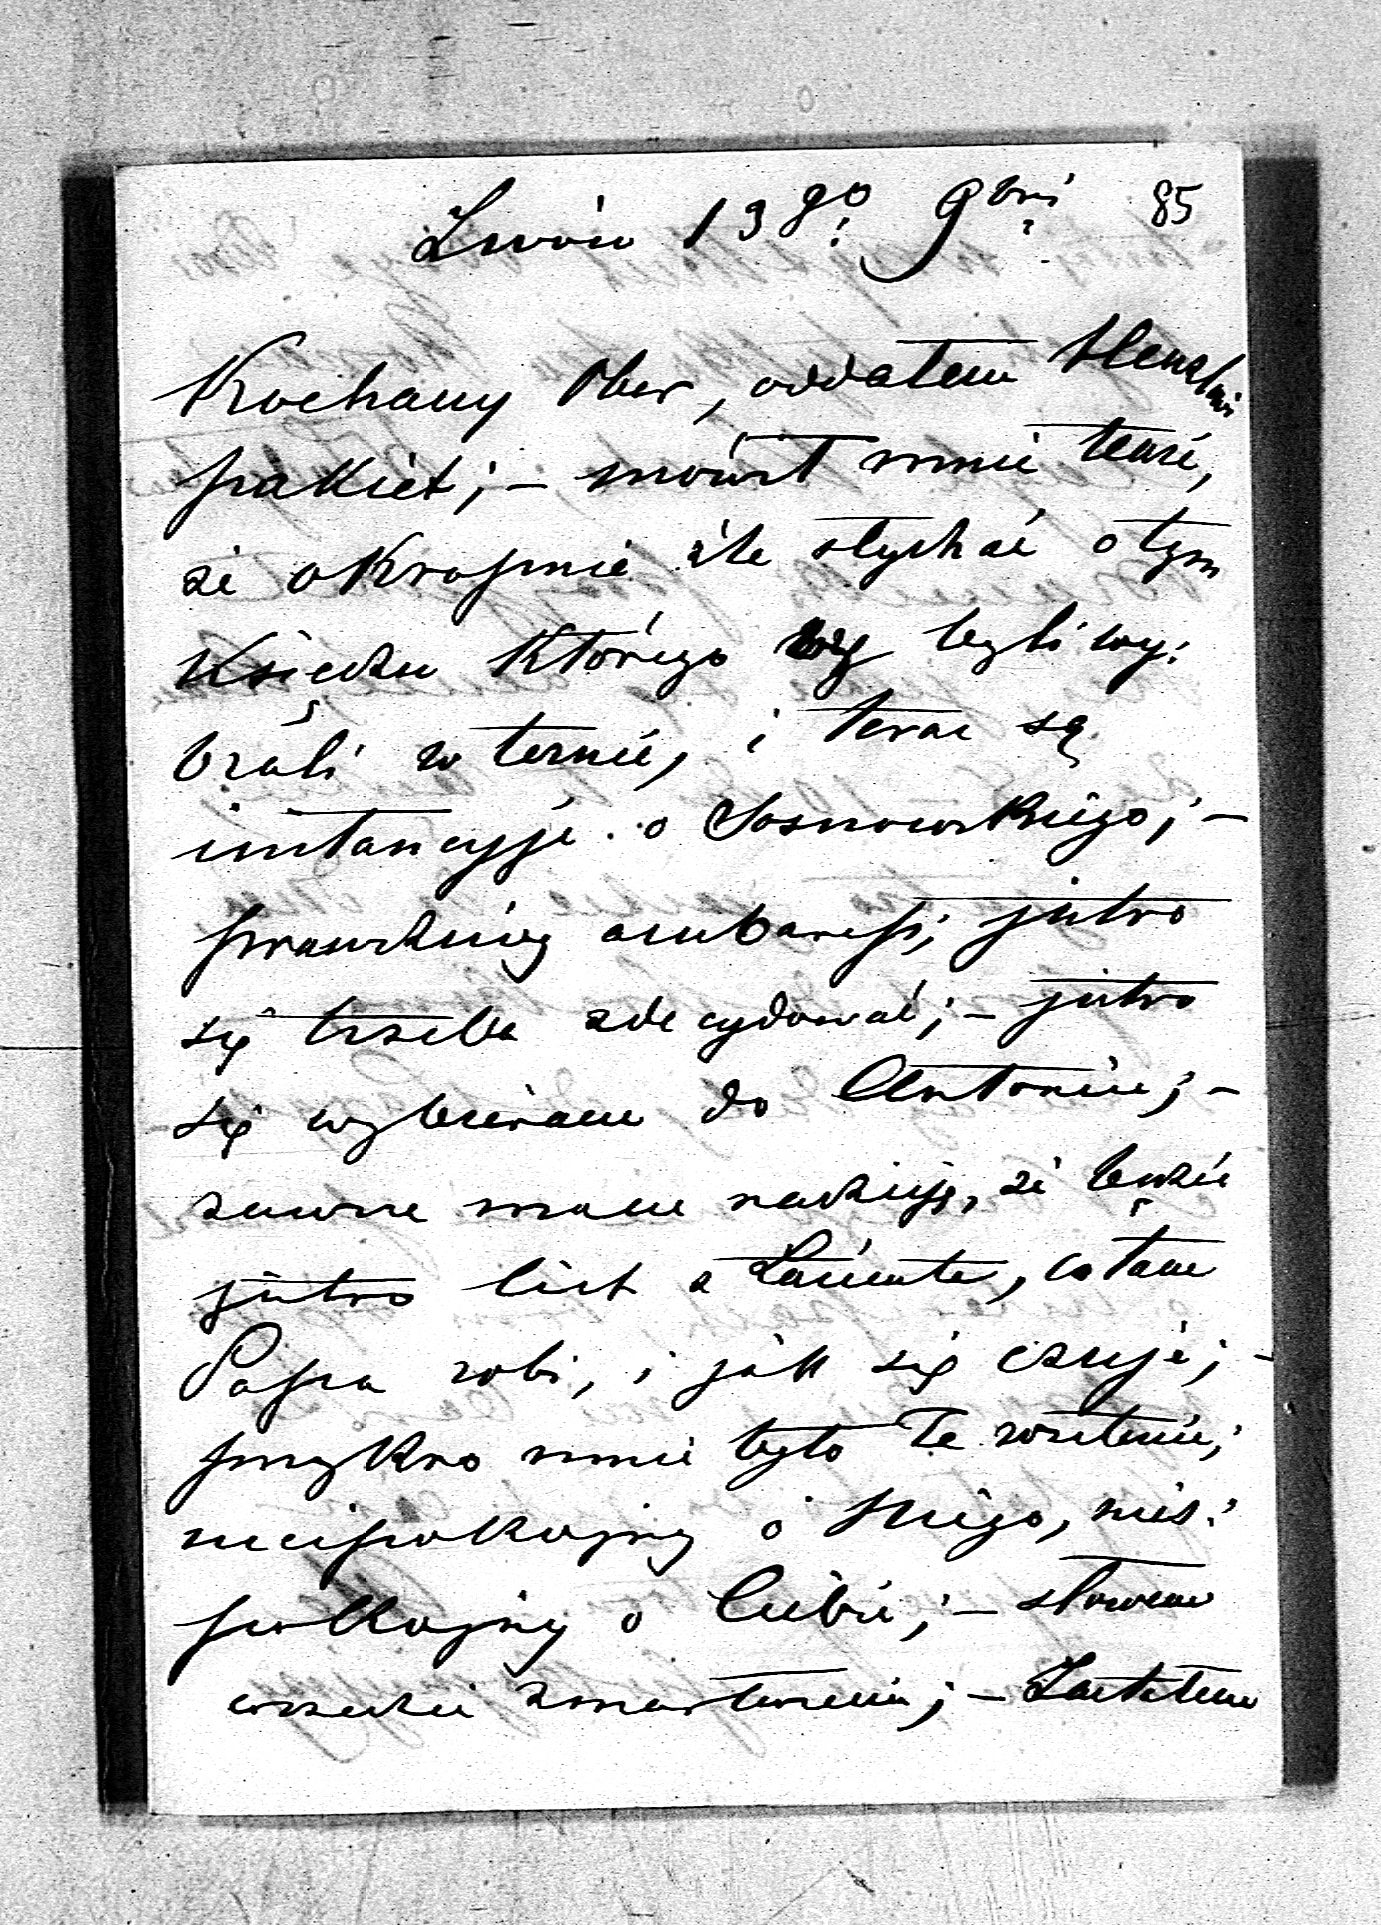 Lwów 13go 9bri 85
Kochany Ober, oddałem
pakiet; – mówił mnie tenże,
że okropnie źle słychać o tym
Księdzu którego wy byli wy:
brali w ternie, i teraz są
instancyje o Sosnowskiego; –
prawdziwy ambaras; jutro
się trzeba zdecydować; – jutro
się wybieram do Antonin; –
zawsze mam nadzieję, że będzie
jutro list z Łańcuta, co tam
Papa robi, i jak się czuje; –
przykro mnie było te rozstanie;
niespokojny o niego, nies:
pokojny o Ciebie; – słowem
wszędzie zmartwienia; –